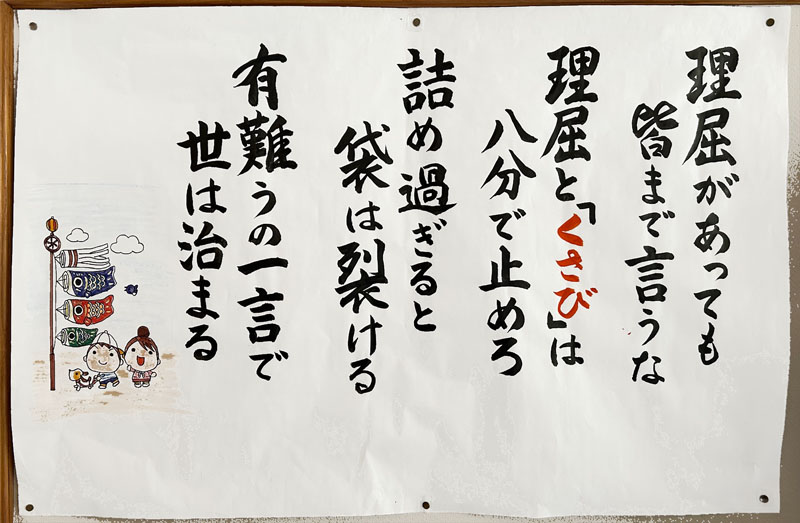 理屈があっても
皆まで言うな
理屈と「くさび」は
八分で止めろ
詰め過ぎると
袋は裂ける
有難うの一言で
世は治まる